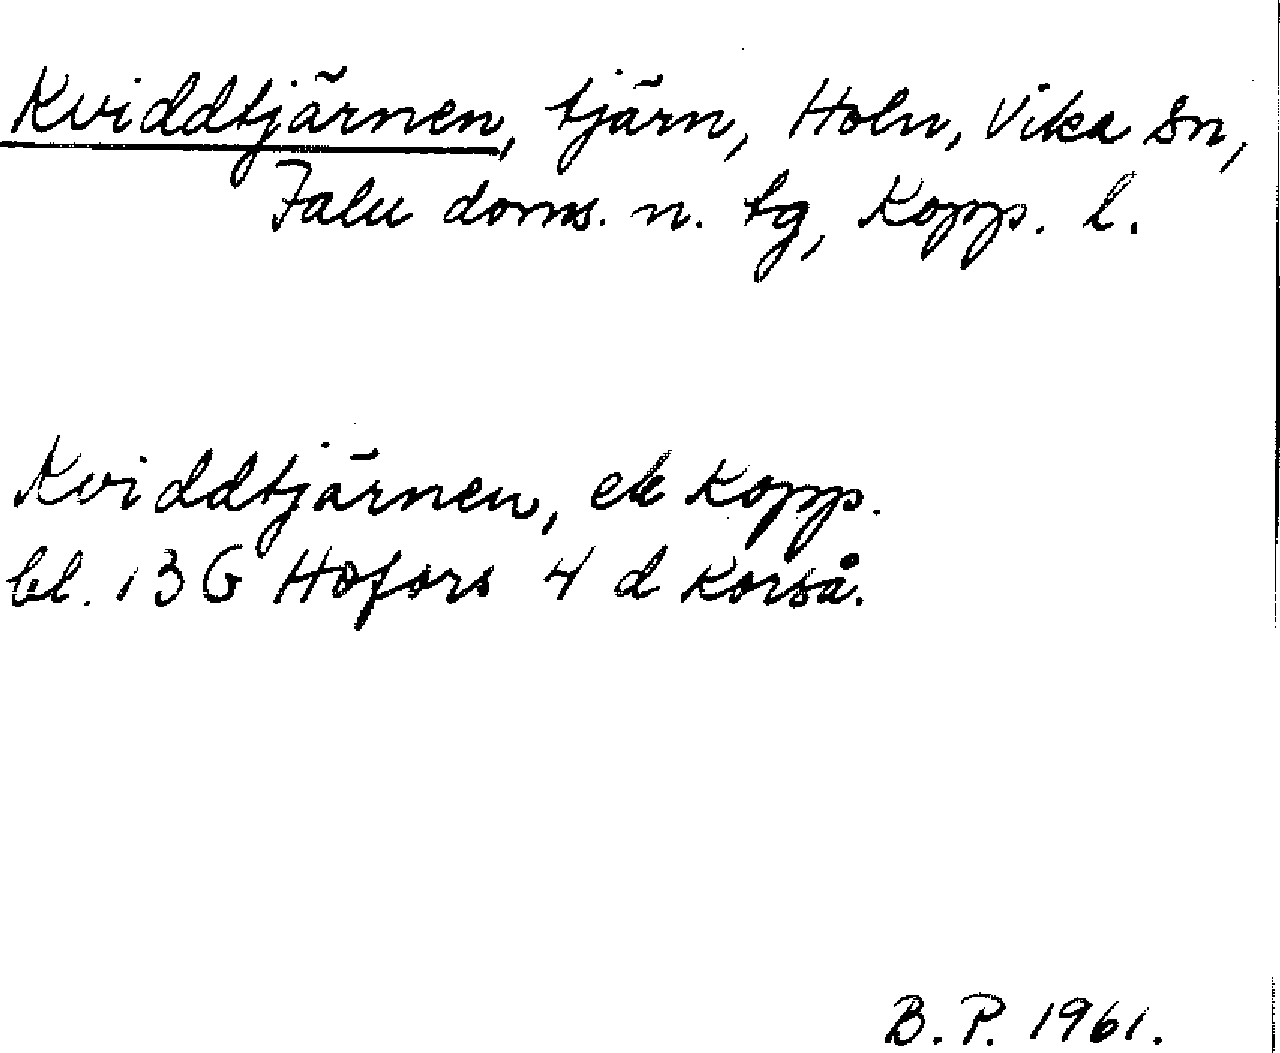 Kviddtjärnen, tjärn, Holn, Vika sn,
Falu doms. n. tg, Kopp. l.
Kviddtjärnen, ek Kopp.
bl. 13G Hofors 4 d Korså.
B. P. 1961.